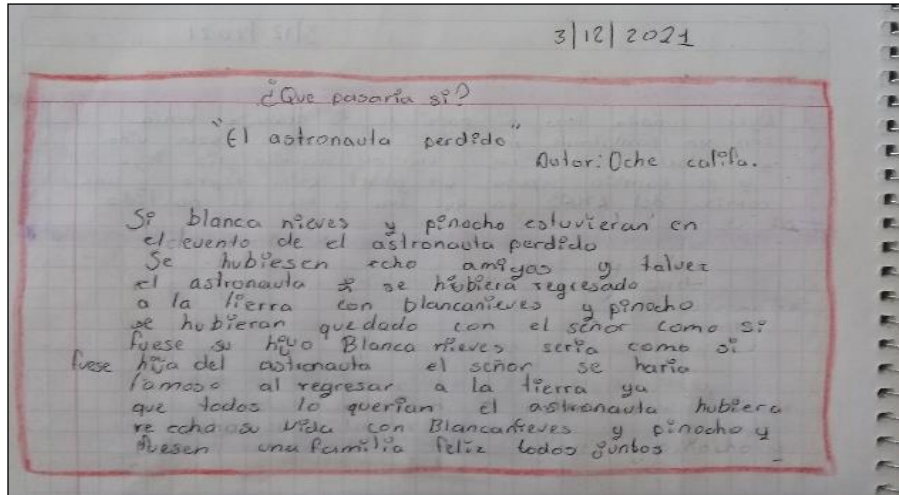 3|12|2021
¿Que pasaría si?
"El astronauta perdido"
Autor: Oche califa.
Si blanca nieves y pinocho estuvieran en
el cuento de el astronauta perdido
Se hubiesen echo amigos y talvez
el astronauta se hubiera regresado
a la tierra con blancanieves y pinocho
se hubieran quedado con el señor como si
fuese su hijo Blanca nieves seria como si
fuese hija del astronauta el señor se haria
famoso al regresar a la tierra ya
que todos lo querian el astronauta hubiera
re echo su vida con Blancanieves y pinocho y
fuesen una familia feliz todos juntos